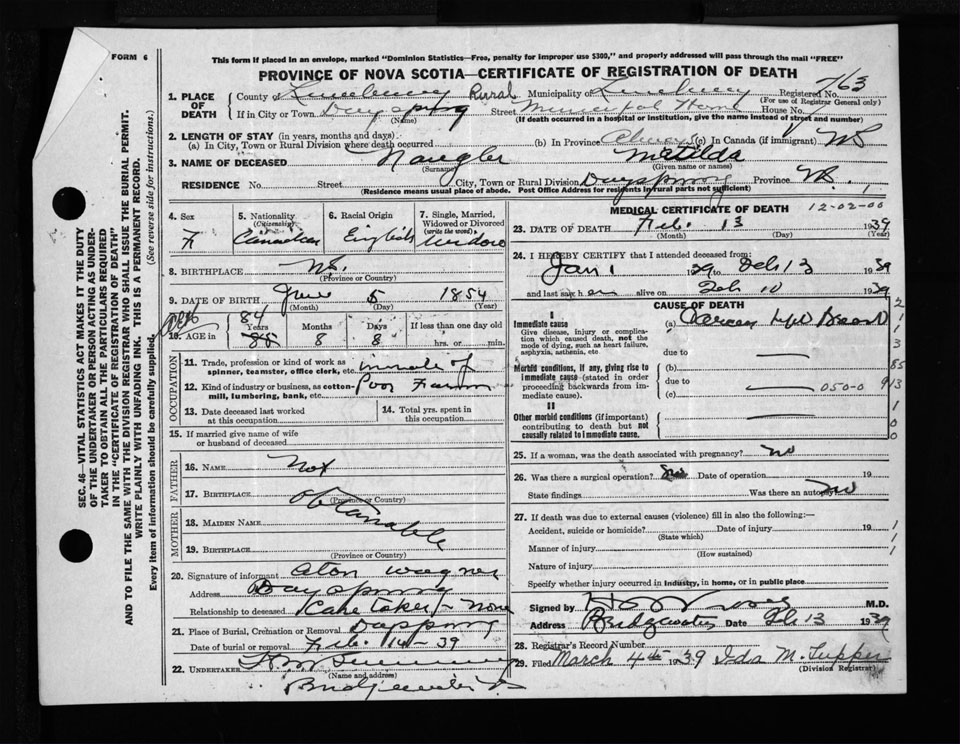 FORM 6
This form if placed in an envelope, marked "Dominion Statistics—Free, penalty for improper use $300," and properly addressed will pass through the mail "FREE"
PROVINCE OF NOVA SCOTIA—CERTIFICATE OF REGISTRATION OF DEATH
SEC. 46—VITAL STATISTICS ACT MAKES IT THE DUTY
OF THE UNDERTAKER OR PERSON ACTING AS UNDER-
TAKER TO OBTAIN ALL THE PARTICULARS REQUIRED
IN THE "CERTIFICATE OF REGISTRATION OF DEATH"
AND TO FILE THE SAME WITH THE DIVISION REGISTRAR WHO SHALL ISSUE THE BURIAL PERMIT.
WRITE PLAINLY WITH UNFADING INK. THIS IS A PERMANENT RECORD.
Every item of information should be carefully supplied. (See reverse side for instructions.)
1. PLACE OF DEATH County of Lunenburg Rural Municipality of Lunenburg Registered No. 763
(For use of Registrar General only)
If in City or Town Dayspring Street Municipal Home House No.
(Name) (If death occurred in a hospital or institution, give the name instead of street and number)
2. LENGTH OF STAY (in years, months and days).
(a) In City, Town or Rural Division where death occurred (b) In Province Always (c) In Canada (if immigrant) NS
3. NAME OF DECEASED Naugler Matilda
(Surname) (Given name or names)
RESIDENCE No. Street City, Town or Rural Division Dayspring Province NS.
(Residence means usual place of abode. Post Office Address for residents in rural parts not sufficient)
4. Sex F
5. Nationality (Citizenship) Canadian
6. Racial Origin English
7. Single, Married, Widowed or Divorced (write the word) Widow
8. BIRTHPLACE N.S.
(Province or Country)
9. DATE OF BIRTH June 5 1854
(Month) (Day) (Year)
84
10. AGE in Years 85 Months 8 Days 8 If less than one day old hrs. or min.
OCCUPATION
11. Trade, profession or kind of work as spinner, teamster, office clerk, etc. inmate of
12. Kind of industry or business, as cotton-mill, lumbering, bank, etc. Poor Farm
13. Date deceased last worked at this occupation
14. Total yrs. spent in this occupation
15. If married give name of wife or husband of deceased
FATHER
16. NAME Not
17. BIRTHPLACE obtainable
(Province or Country)
MOTHER
18. MAIDEN NAME
19. BIRTHPLACE
(Province or Country)
20. Signature of informant Aton Wagner
Address Dayspring
Relationship to deceased Care taker - None
21. Place of Burial, Cremation or Removal Dayspring
Date of burial or removal Feb. 14 - 39
22. UNDERTAKER
(Name and address)
Bridgewater
MEDICAL CERTIFICATE OF DEATH 12-02-00
23. DATE OF DEATH Feb. 13 1939
(Month) (Day) (Year)
24. I HEREBY CERTIFY that I attended deceased from:
Jan 1 1929 to Feb 13 1939
and last saw her alive on Feb 10 1939
CAUSE OF DEATH
I
Immediate cause
Give disease, injury or complication which caused death, not the mode of dying, such as heart failure, asphyxia, asthenia, etc.
(a) Breast
due to
Morbid conditions, if any, giving rise to immediate cause (stated in order proceeding backwards from immediate cause).
(b)
due to 050-0
(c)
II
Other morbid conditions (if important) contributing to death but not causally related to immediate cause.
2
1
1
3
85
913
1
0
0
25. If a woman, was the death associated with pregnancy? no
26. Was there a surgical operation? no Date of operation 19
State findings Was there an autopsy? no
27. If death was due to external causes (violence) fill in also the following:—
Accident, suicide or homicide? Date of injury 19
(State which)
Manner of injury
(How sustained)
Nature of injury
Specify whether injury occurred in industry, in home, or in public place
1
1
1
Signed by M.D.
Address Bridgewater Date Feb 13 1939
28. Registrar's Record Number
29. Filed March 4th 1939 Ida M. Tupper
(Division Registrar)